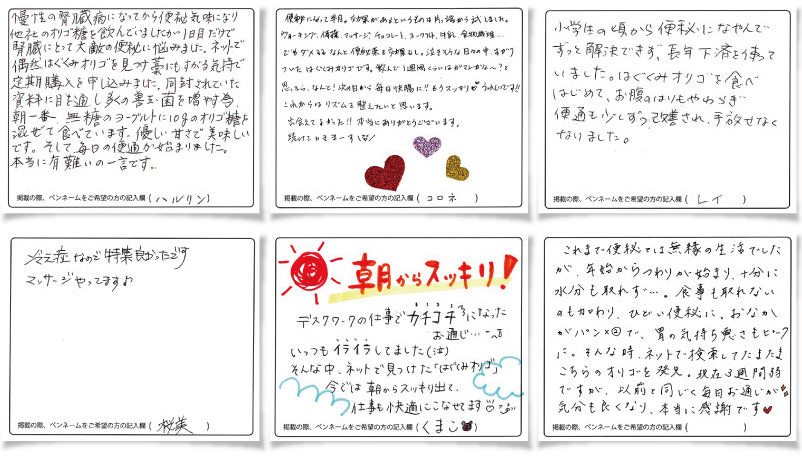 慢性の腎臓病になってから便秘気味になり
他社のオリゴ糖を飲んでいましたが1日目だけで
腎臓にとって大敵の便秘に悩みました。ネットで
偶然はぐくみオリゴを見つけ藁にもすがる気持で
定期購入を申し込みました。同封されていた
資料に目を通し多くの善玉菌を増やす為、
朝一番、無糖のヨーグルトに10gのオリゴ糖を
混ぜて食べています。優しい甘さで美味しい
です。そして毎日の便通が始まりました。
本当に有難いの一言です。
掲載の際、ペンネームをご希望の方の記入欄(ハルリン)
便秘になって半年。効果があるというものは片っ端から試しました。
ウォーキング、体操、マッサージ、チョコレート、ヨーグルト、牛乳、食物繊維…
でもダメ、なんと便秘薬も効果なし。泣きそうな日々の中、すがり
ついたはぐくみオリゴです。飲んで1週間くらいはガマンかな～?と
思ったら、なんと!次の日から毎日快腸に!!もうスッキリ♥うれしいです!!
これからはリズムを整えたいと思います。
出会えてよかった!!本当にありがとうございます。
続けていきまーす
掲載の際、ペンネームをご希望の方の記入欄(コロネ)
小学生の頃から便秘になやんで
ずっと解決できず、長年下済を使って
いました。はぐくみオリゴを食べ
はじめて、お腹のはりもやわらぎ
便通も少しずつ改善され、手放せなく
なりました。
掲載の際、ペンネームをご希望の方の記入欄(レイ)
冷え症なので特集良かったです
マッサージやってます♪
掲載の際、ペンネームをご希望の方の記入欄(桜美)
朝からスッキリ!
デスクワークの仕事でカチコチになった
お通じ…
いっつもイライラしてました(泣)
そんな中、ネットで見つけた「はぐくみオリゴ」
今では朝からスッキリ出て、
仕事も快適にこなせてます
掲載の際、ペンネームをご希望の方の記入欄(くまこ)
これまで便秘とは無縁の生活でした
が、年始からつわりが始まり、十分に
水分も取れず…。食事も取れない
のも加わり、ひどい便秘に。おなか
がパンパンで、胃の気持ち悪さもピーク
に。そんな時、ネットで検索してたまたま
こちらのオリゴを発見。現在3週間弱
ですが、以前と同じく毎日お通じが
気分も良くなり、本当に感謝です♥
掲載の際、ペンネームをご希望の方の記入欄(